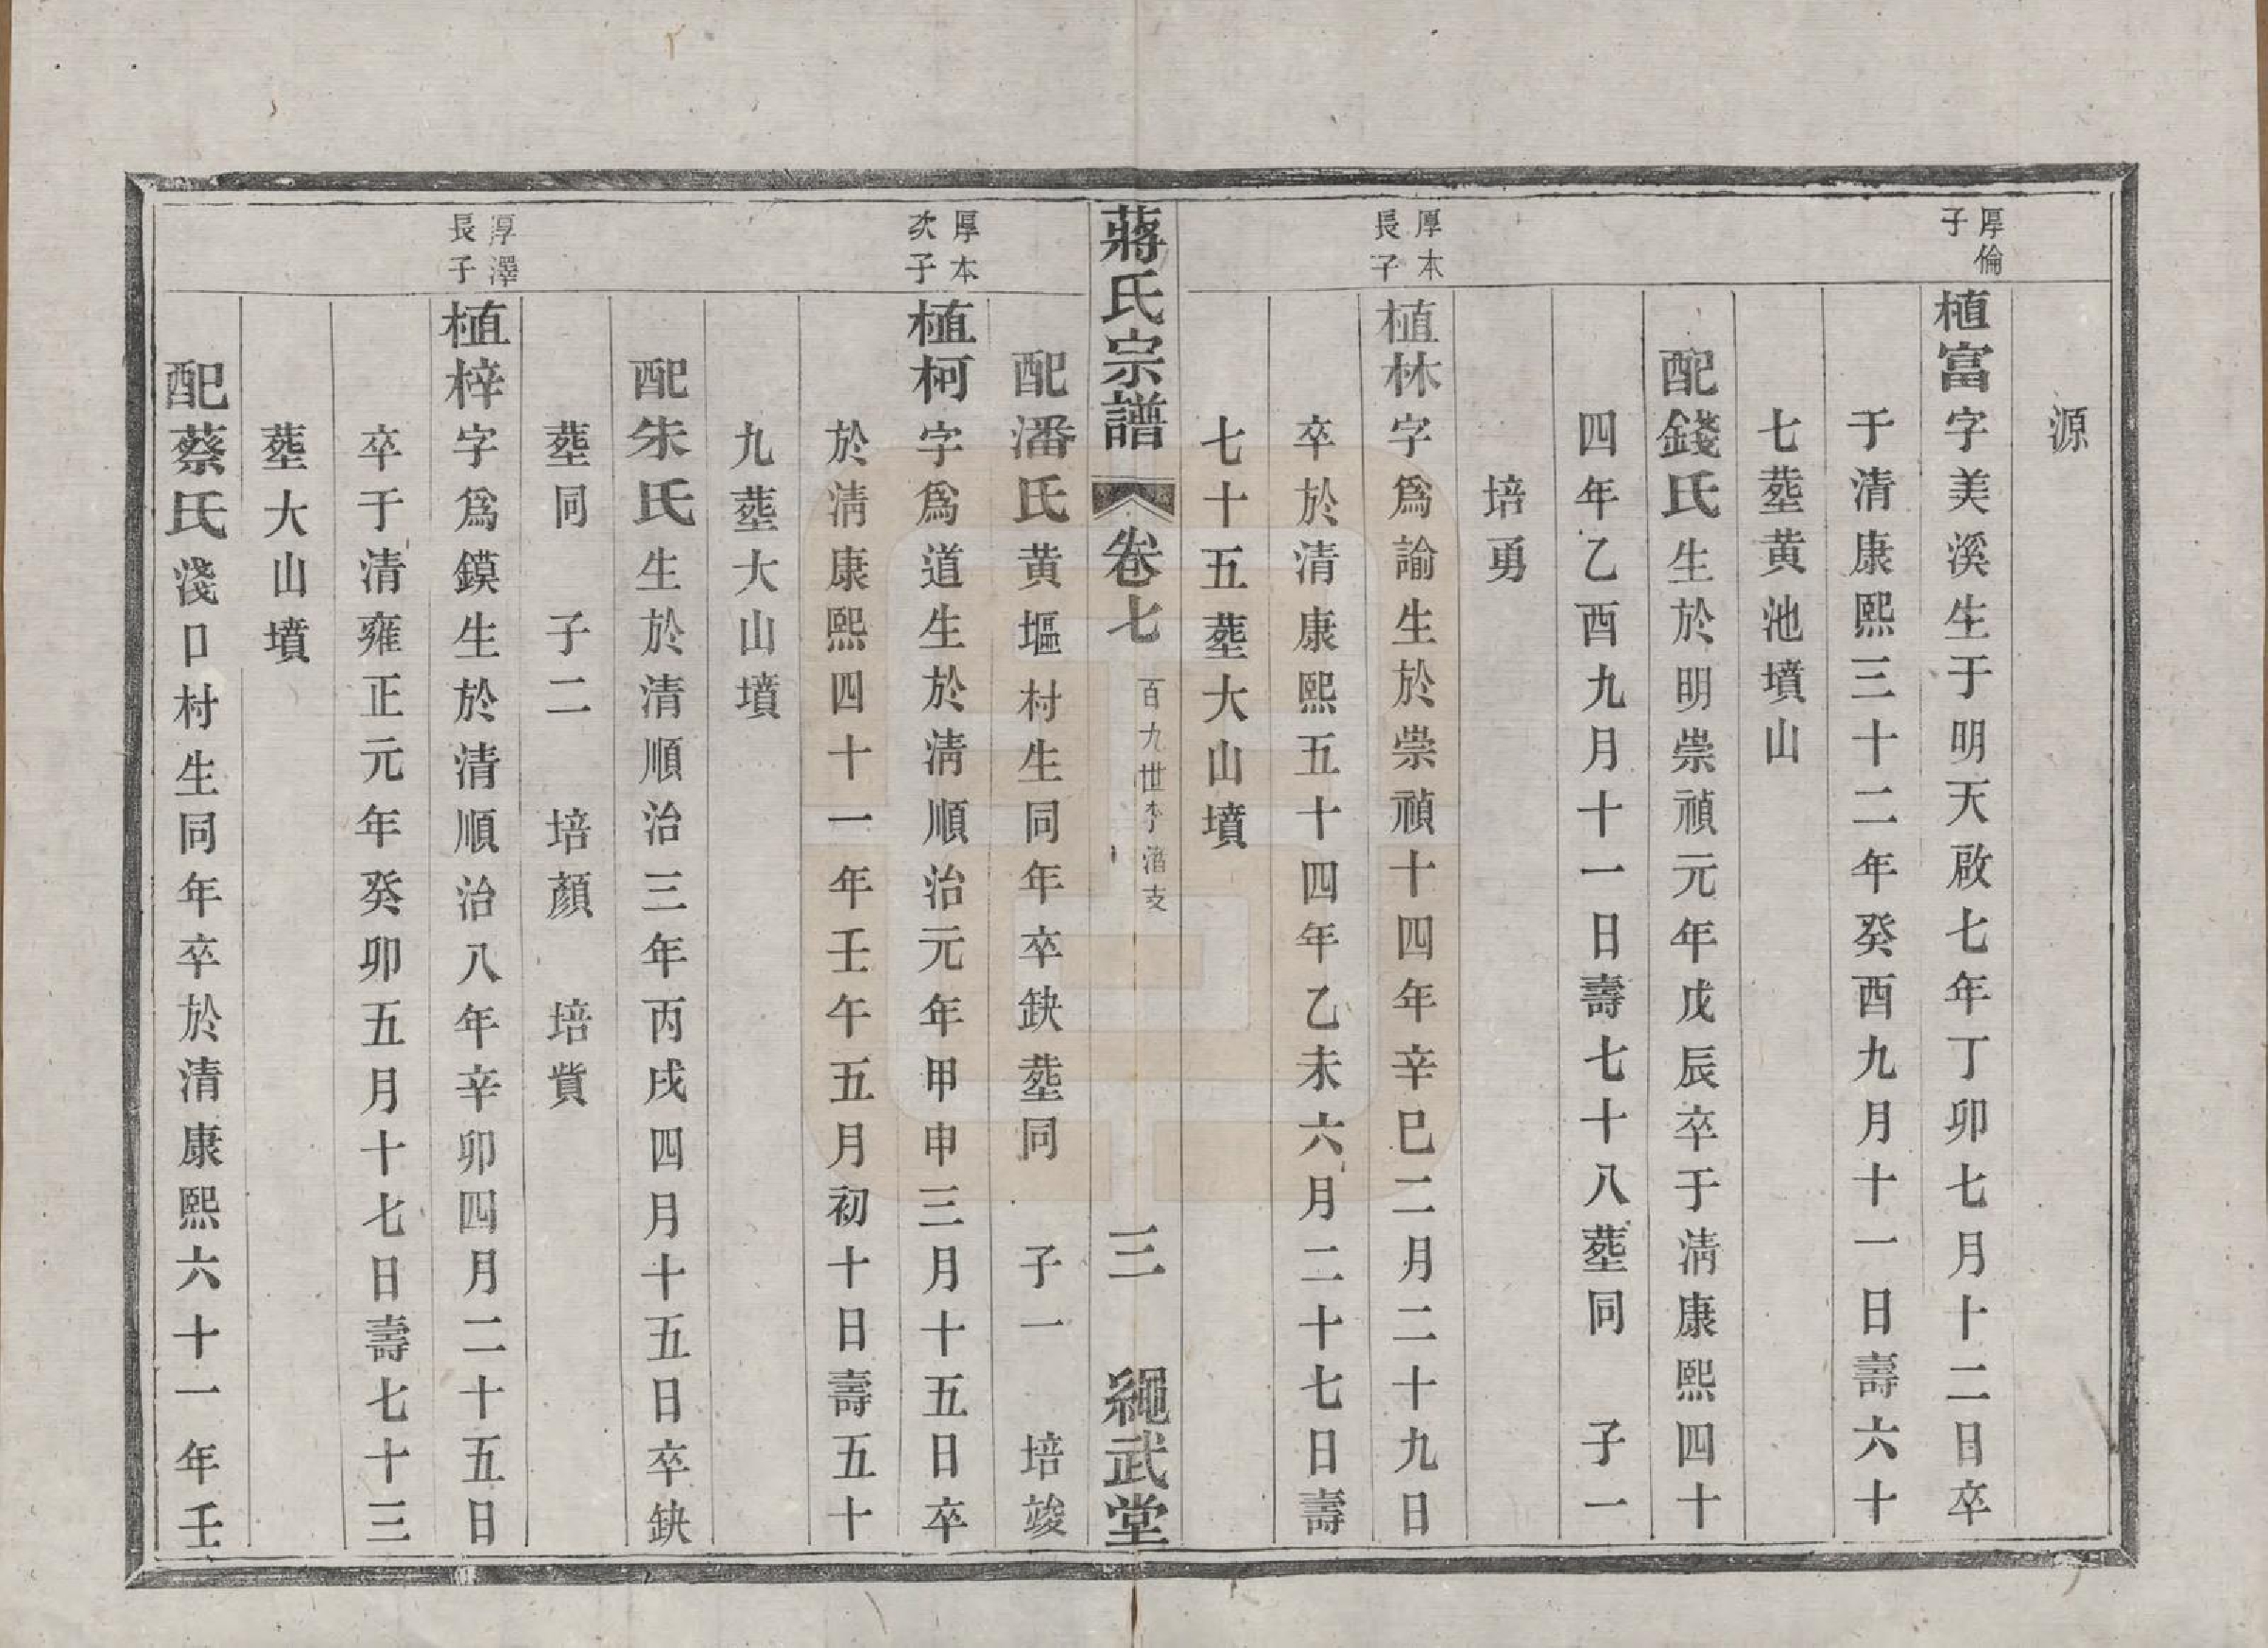 源
厚倫子
植富字美溪生于明天啟七年丁卯七月十二日卒
于清康熙三十二年癸酉九月十一日壽六十
七塟黄池墳山
配錢氏生於明崇禎元年戊辰卒于清康熙四十
四年乙酉九月十一日壽七十八塟同 子一
培勇
厚本長子
植林字為諭生於崇禎十四年辛巳二月二十九日
卒於清康熙五十四年乙未六月二十七日壽
七十五塟大山墳
蔣氏宗譜 卷七 百九世 支 三 繩武堂
配潘氏黄塸村生同年卒缺塟同 子一 培竣
厚本次子
植柯字為道生於清順治元年甲申三月十五日卒
於清康熙四十一年壬午五月初十日壽五十
九塟大山墳
配朱氏生於清順治三年丙戌四月十五日卒缺
塟同 子二 培顏 培貲
厚澤長子
植梓字為鏌生於清順治八年辛卯四月二十五日
卒于清雍正元年癸卯五月十七日壽七十三
塟大山墳
配蔡氏淺口村生同年卒於清康熙六十一年壬